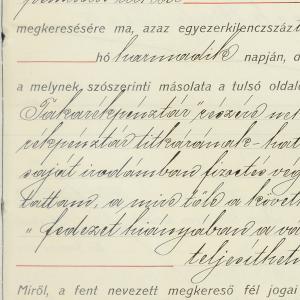 megkeresésére ma, azaz egyezerkilenczszáz
hó harmadik napján, d
a melynek, szószerinti másolata a tulsó oldal
Takarékpénztár" részvé
rékpénztár titkárának hat
saját irodámban fizetés vég
tattam, a mire tőle a követ
" fedezet hiányában a va
teljesíthet
Miről, a fent nevezett megkereső fél jogai